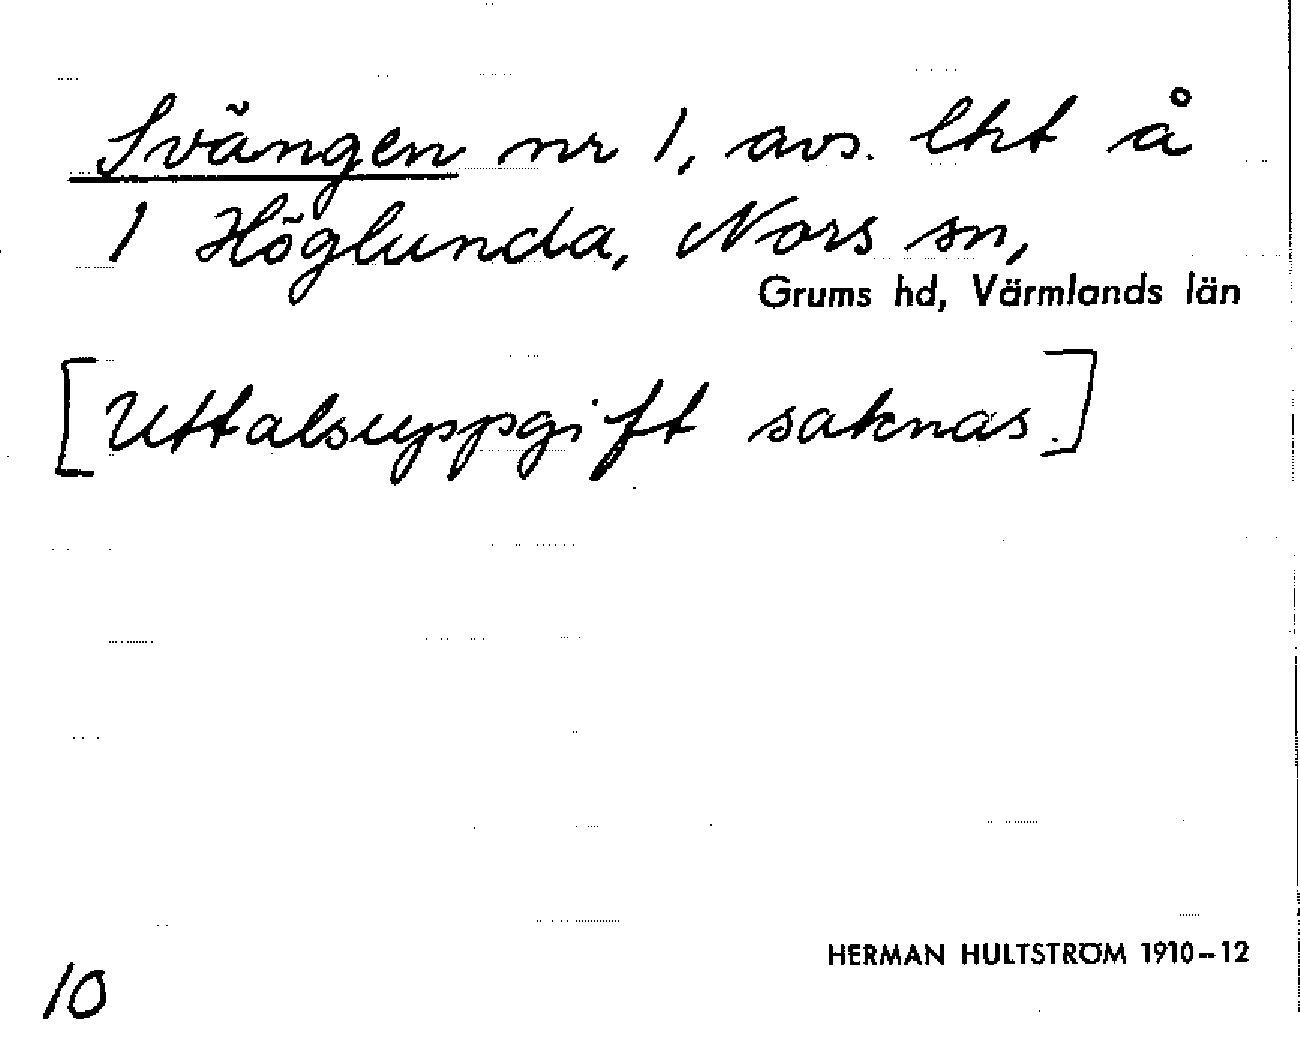 Svängen nr 1, avs. lht å
1 Höglunda, Nors sn,
Grums hd, Värmlands län
[Uttalsuppgift saknas.]
HERMAN HULTSTRÖM 1910-12
10